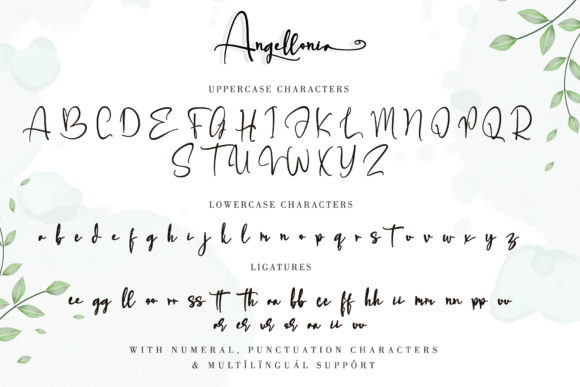 Angellonia
UPPERCASE CHARACTERS
A B C D E F G H I J K L M N O P Q R
S T U V W X Y Z
LOWERCASE CHARACTERS
a b c d e f g h i j k l m n o p q r s t u v w x y z
LIGATURES
ee gg ll oo rr ss tt th aa bb cc ff hh ii mm nn pp vv
ar er ur or an ii vv
WITH NUMERAL, PUNCTUATION CHARACTERS
& MULTÎLÏNGUÁL SUPPÔRT